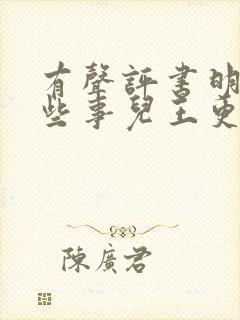 有聲評書明
些事兒王更
陳廣君